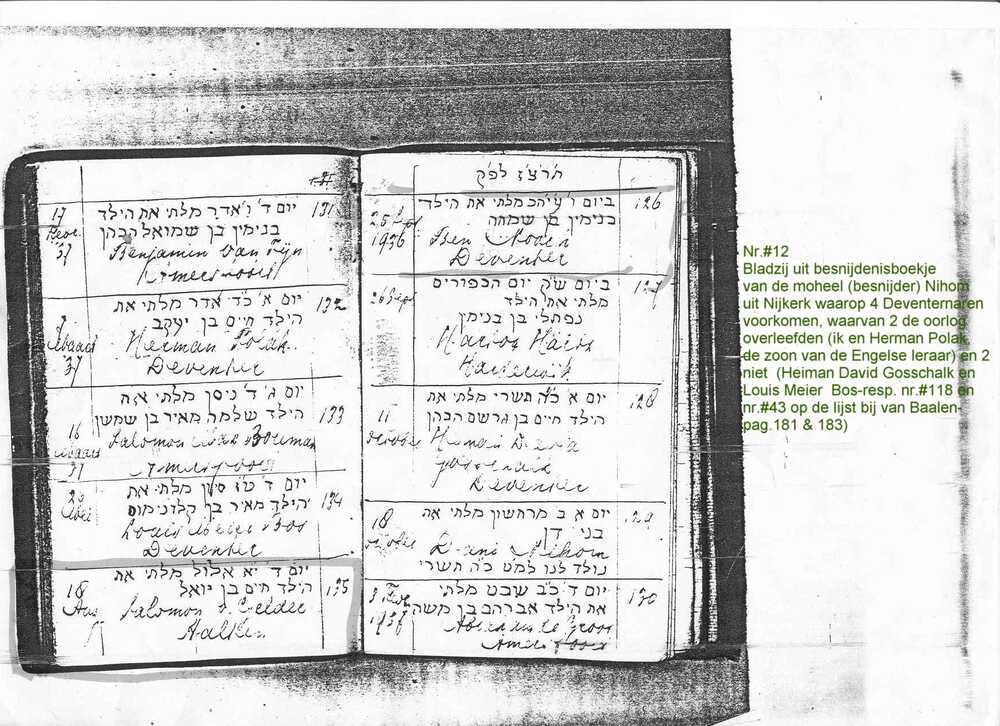 תרצ״ז לפ״ק
126
ביום ו׳ עיה״כ מלתי את הילד
בנימין בן שמחה
25 Sept
1936
Ben
Deventer
127
ביום ש״ק יום הכפורים
מלתי את הילד
נפתלי בן בנימין
26 Sept
Harderwijk
128
יום א׳ כ״ה תשרי מלתי את
הילד חיים בן גרשם הכהן
11
Deventer
129
יום א׳ ב׳ מרחשון מלתי את
בני דן
18
Dani Nihom
נולד לנו למט כ״ה תשרי
130
יום ד׳ כ״ב שבט מלתי
את הילד אברהם בן משה
3 Febr
Abraham de Groot
Amersfoort
131
יום ד׳ ו׳ אדר מלתי את הילד
בנימין בן שמואל הכהן
17
Febr
37
Benjamin van Tijn
Amersfoort
132
יום א׳ כ״ד אדר מלתי את
הילד חיים בן יעקב
7
Maart
37
Herman Polak
Deventer
133
יום ג׳ ד׳ ניסן מלתי את
הילד שלמה מאיר בן שמשון
16
Maart
37
Salomon
Amersfoort
134
יום ד׳ ט״ז סיון מלתי את
הילד מאיר בן קלונימוס
Louis Meier Bos
Deventer
135
יום ד׳ יא אלול מלתי את
הילד חיים בן יואל
18
Aug
Salomon v. Gelder
Aalten
Nr.#12
Bladzij uit besnijdenisboekje
van de moheel (besnijder) Nihom
uit Nijkerk waarop 4 Deventernaren
voorkomen, waarvan 2 de oorlog
overleefden (ik en Herman Polak,
de zoon van de Engelse leraar) en 2
niet (Heiman David Gosschalk en
Louis Meier Bos-resp. nr.#118 en
nr.#43 op de lijst bij van Baalen-
pag.181 & 183)